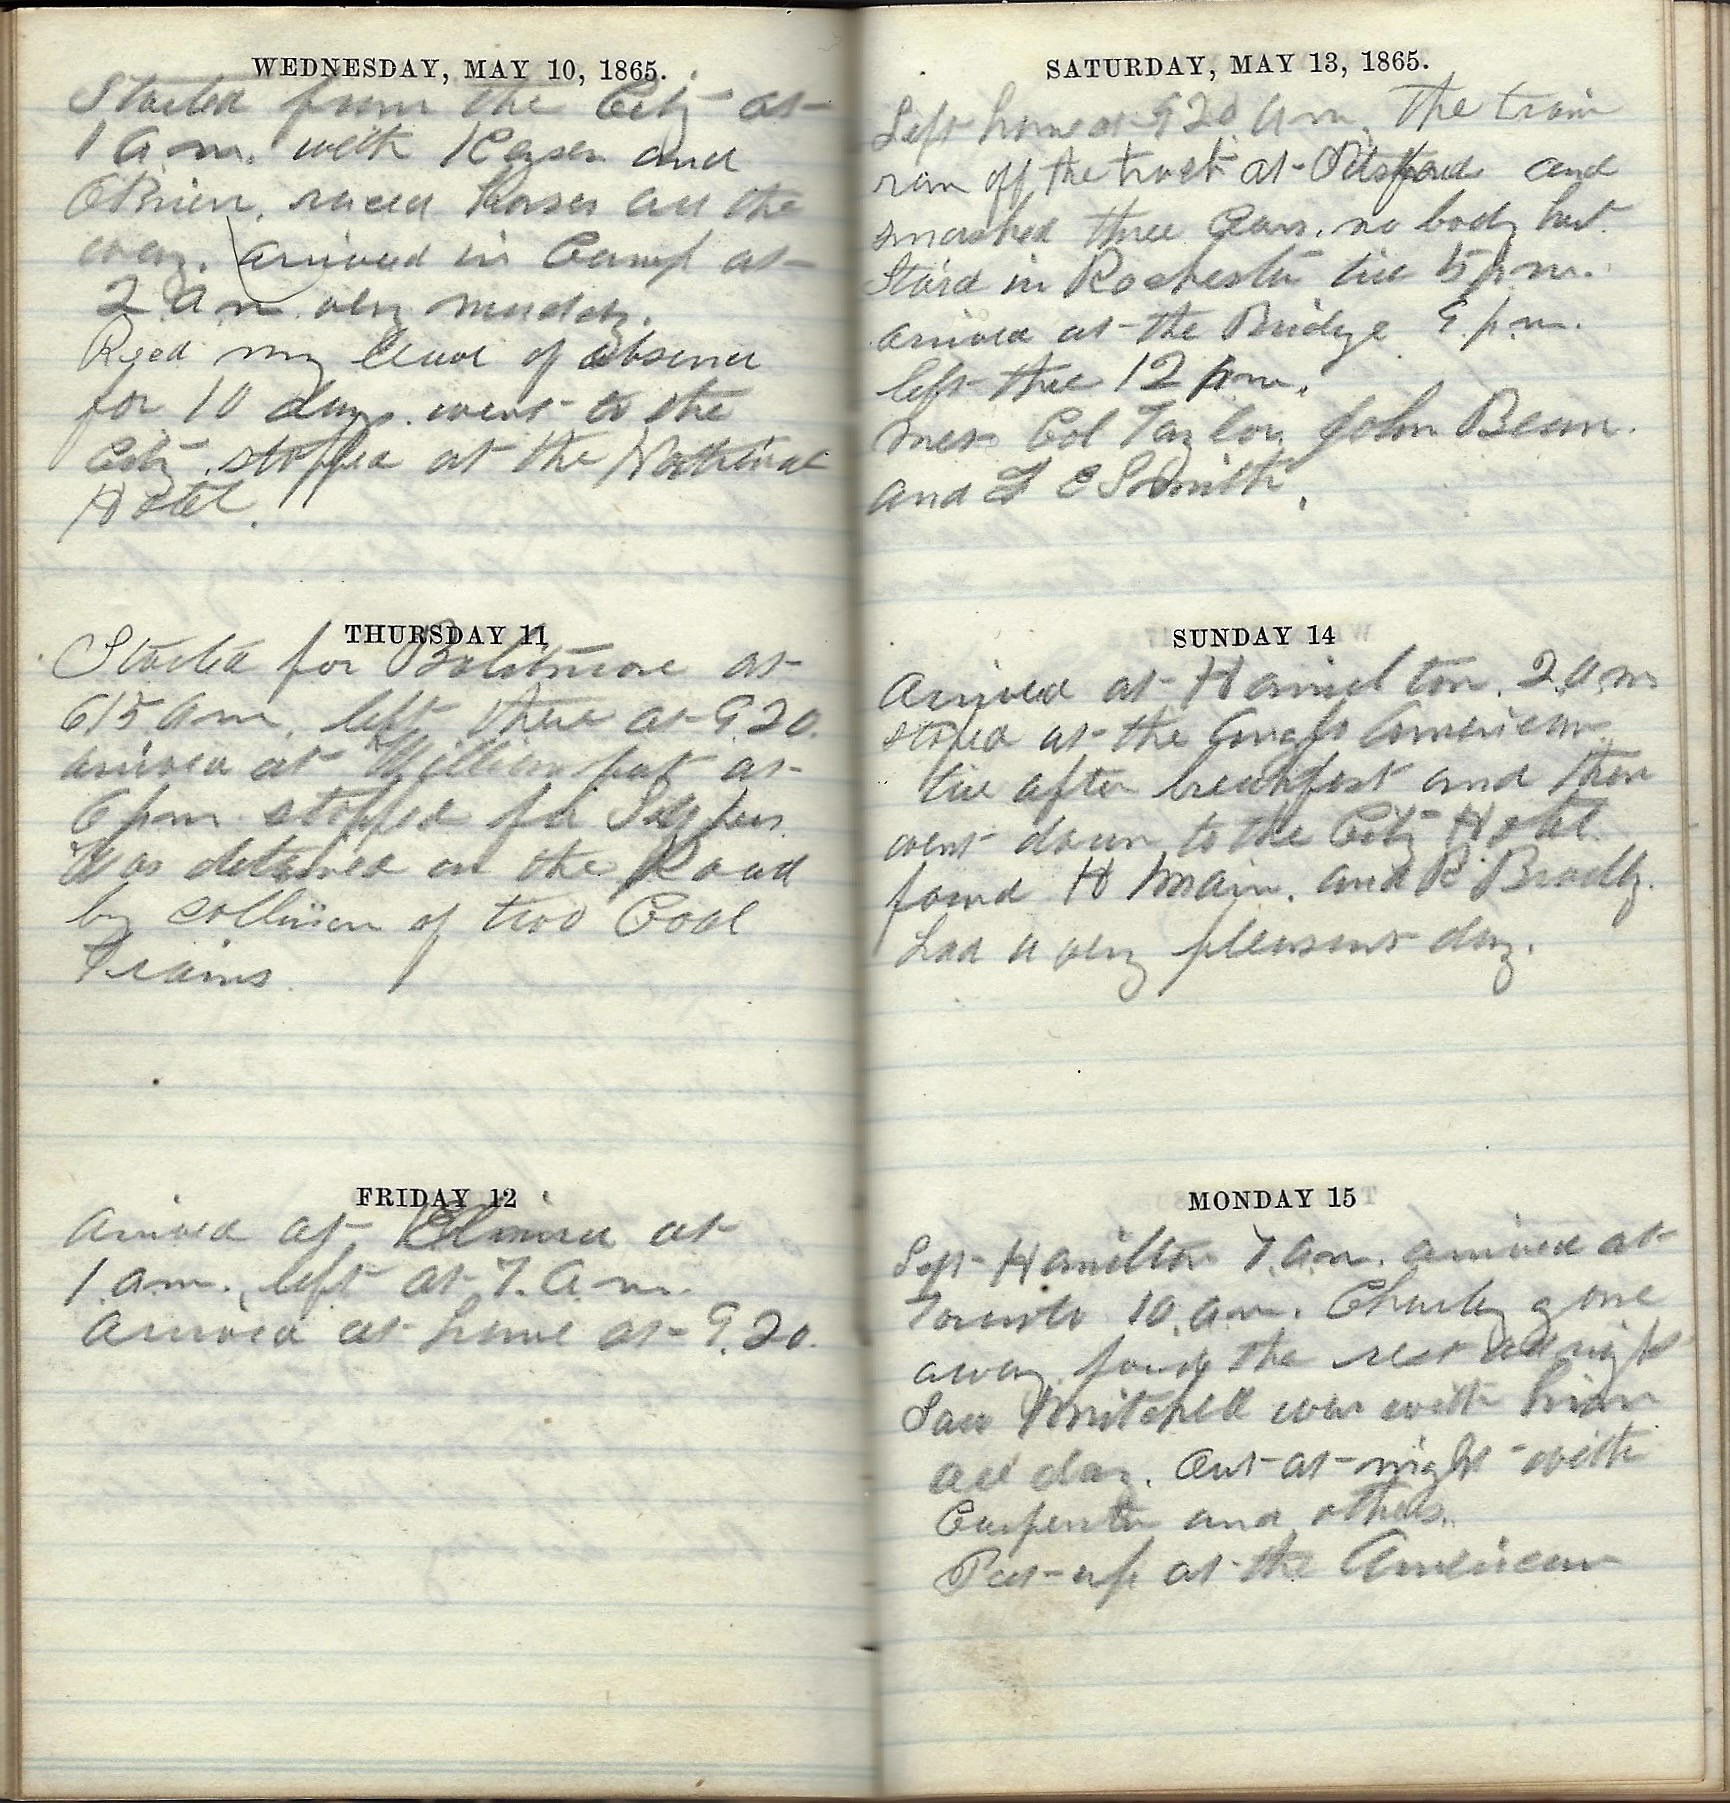 WEDNESDAY, MAY 10, 1865.
Started from the City at
1 a.m. with Keyser and
OBrien. raced horses all the
way. arrived in Camp at
2 a m very muddy.
Recd my leave of absence
for 10 days. went to the
City stopped at the National
Hotel.
THURSDAY 11
Started for Baltimore at
615 am, left there at 9.20.
arrived at Williamsport at
6 pm stopped for Supper.
Was detained on the Road
by collision of two Coal
Trains.
FRIDAY 12
Arrived at Elmira at
1 am., left at 7. a.m.
Arrived at home at 9.20.
SATURDAY, MAY 13, 1865.
Left home at 920 am. The train
run off the track at Pittsford and
smashed three Cars. no body hurt.
Staid in Rochester till 5 p.m.
arrived at the Bridge 9 p.m.
left there 12 pm.
Met Col Taylor, John Bean.
and E Smith.
SUNDAY 14
Arrived at Hamilton. 2.a.m
stoped at the Anglo American
till after breakfast and then
went down to the City Hotel.
found H Main. and R Bradly.
had a very pleasant day.
MONDAY 15
Left Hamilton 7.am. arrived at
Toronto 10.am. Charley gone
away. found the rest all right
Saw Mitchell was with him
all day. Out at night with
Carpenter and others.
Put up at the American